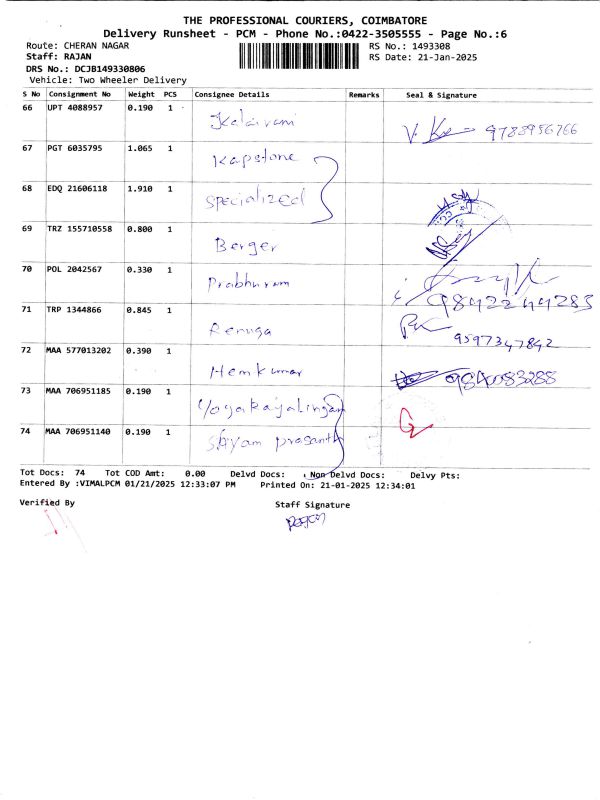 THE PROFESSIONAL COURIERS, COIMBATORE
Delivery Runsheet - PCM - Phone No.:0422-3505555 - Page No.:6
Route: CHERAN NAGAR RS No.: 1493308
Staff: RAJAN RS Date: 21-Jan-2025
DRS No.: DCJB149330806
Vehicle: Two Wheeler Delivery
S No Consignment No Weight PCS Consignee Details Remarks Seal & Signature
66 UPT 4088957 0.190 1 Kalaivani 9788956766
67 PGT 6035795 1.065 1 Kapstone
68 EDQ 21606118 1.910 1 specialized
69 TRZ 155710558 0.800 1 Berger
70 POL 2042567 0.330 1 Prabhuram 9842244283
71 TRP 1344866 0.845 1 Renuga 9597347842
72 MAA 577013202 0.390 1 Hemkumar
73 MAA 706951185 0.190 1
74 MAA 706951140 0.190 1 Shyam prasanth
Tot Docs: 74 Tot COD Amt: 0.00 Delvd Docs: Non Delvd Docs: Delvy Pts:
Entered By :VIMALPCM 01/21/2025 12:33:07 PM Printed On: 21-01-2025 12:34:01
Verified By Staff Signature